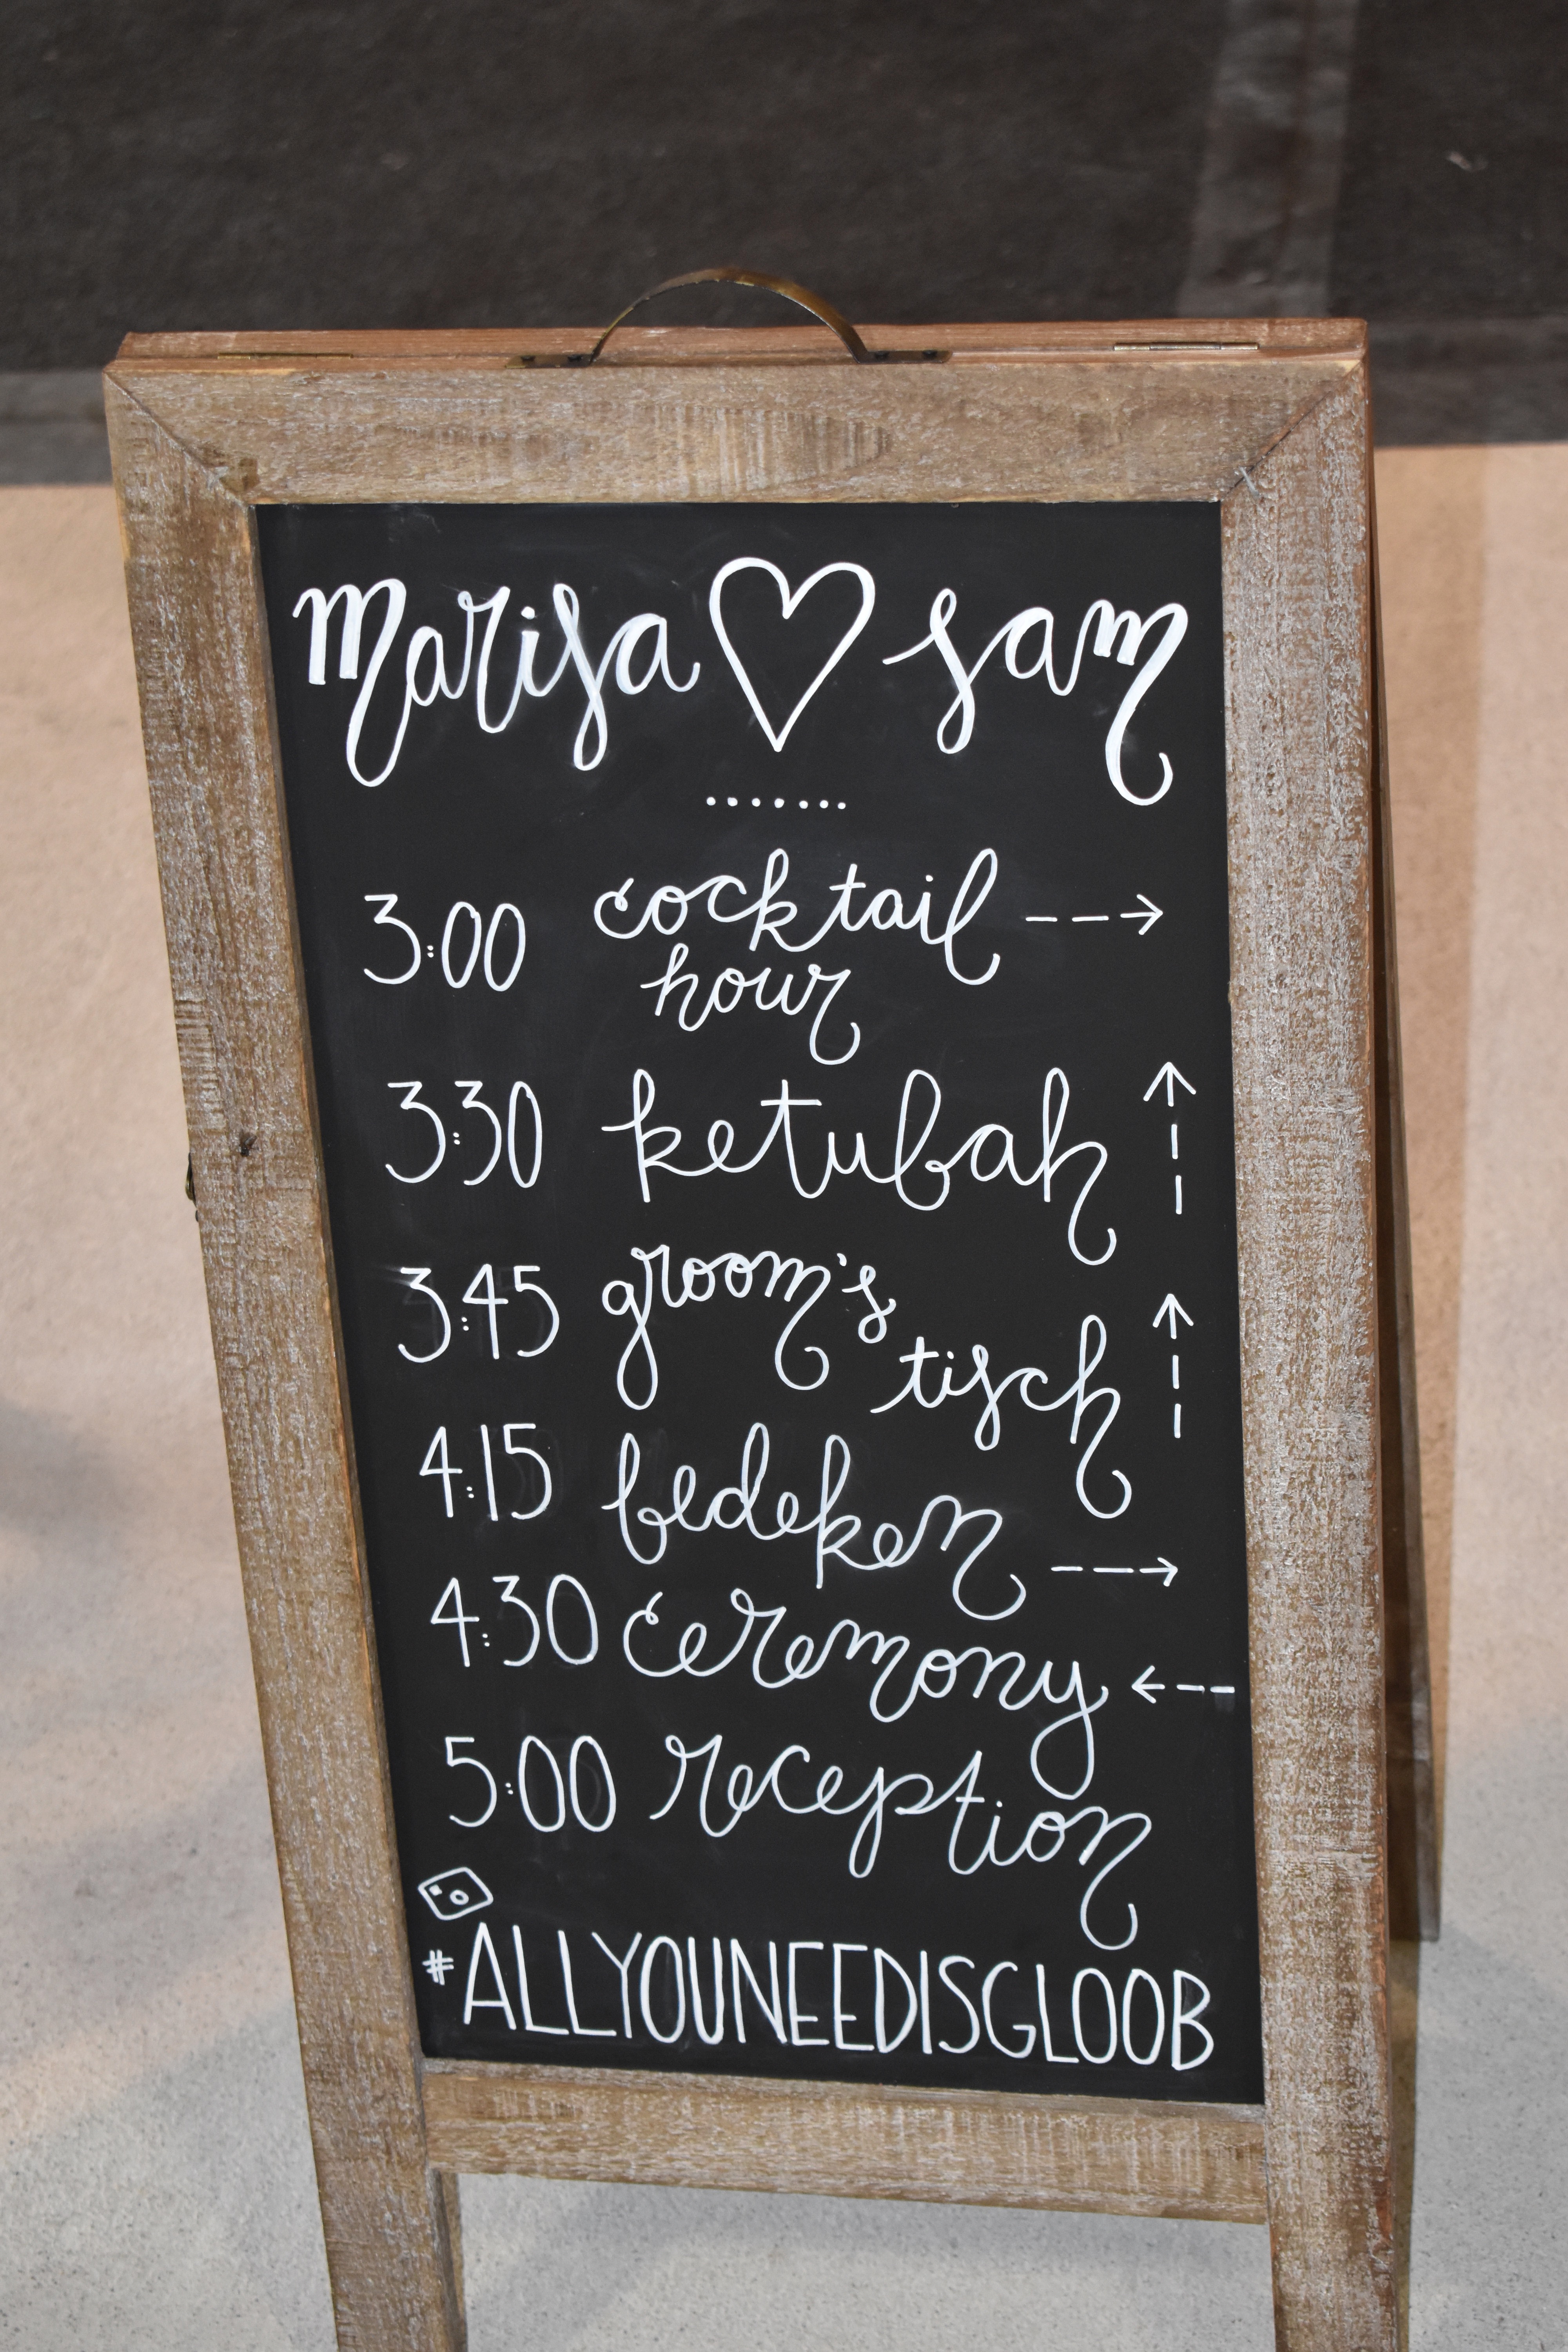 marisa ♡ sam
.......
3:00 cocktail --->
hour
3:30 ketubah
3:45 groom's
tisch
4:15 bedeken --->
4:30 ceremony <---
5:00 reception
#ALLYOUNEEDISGLOOB